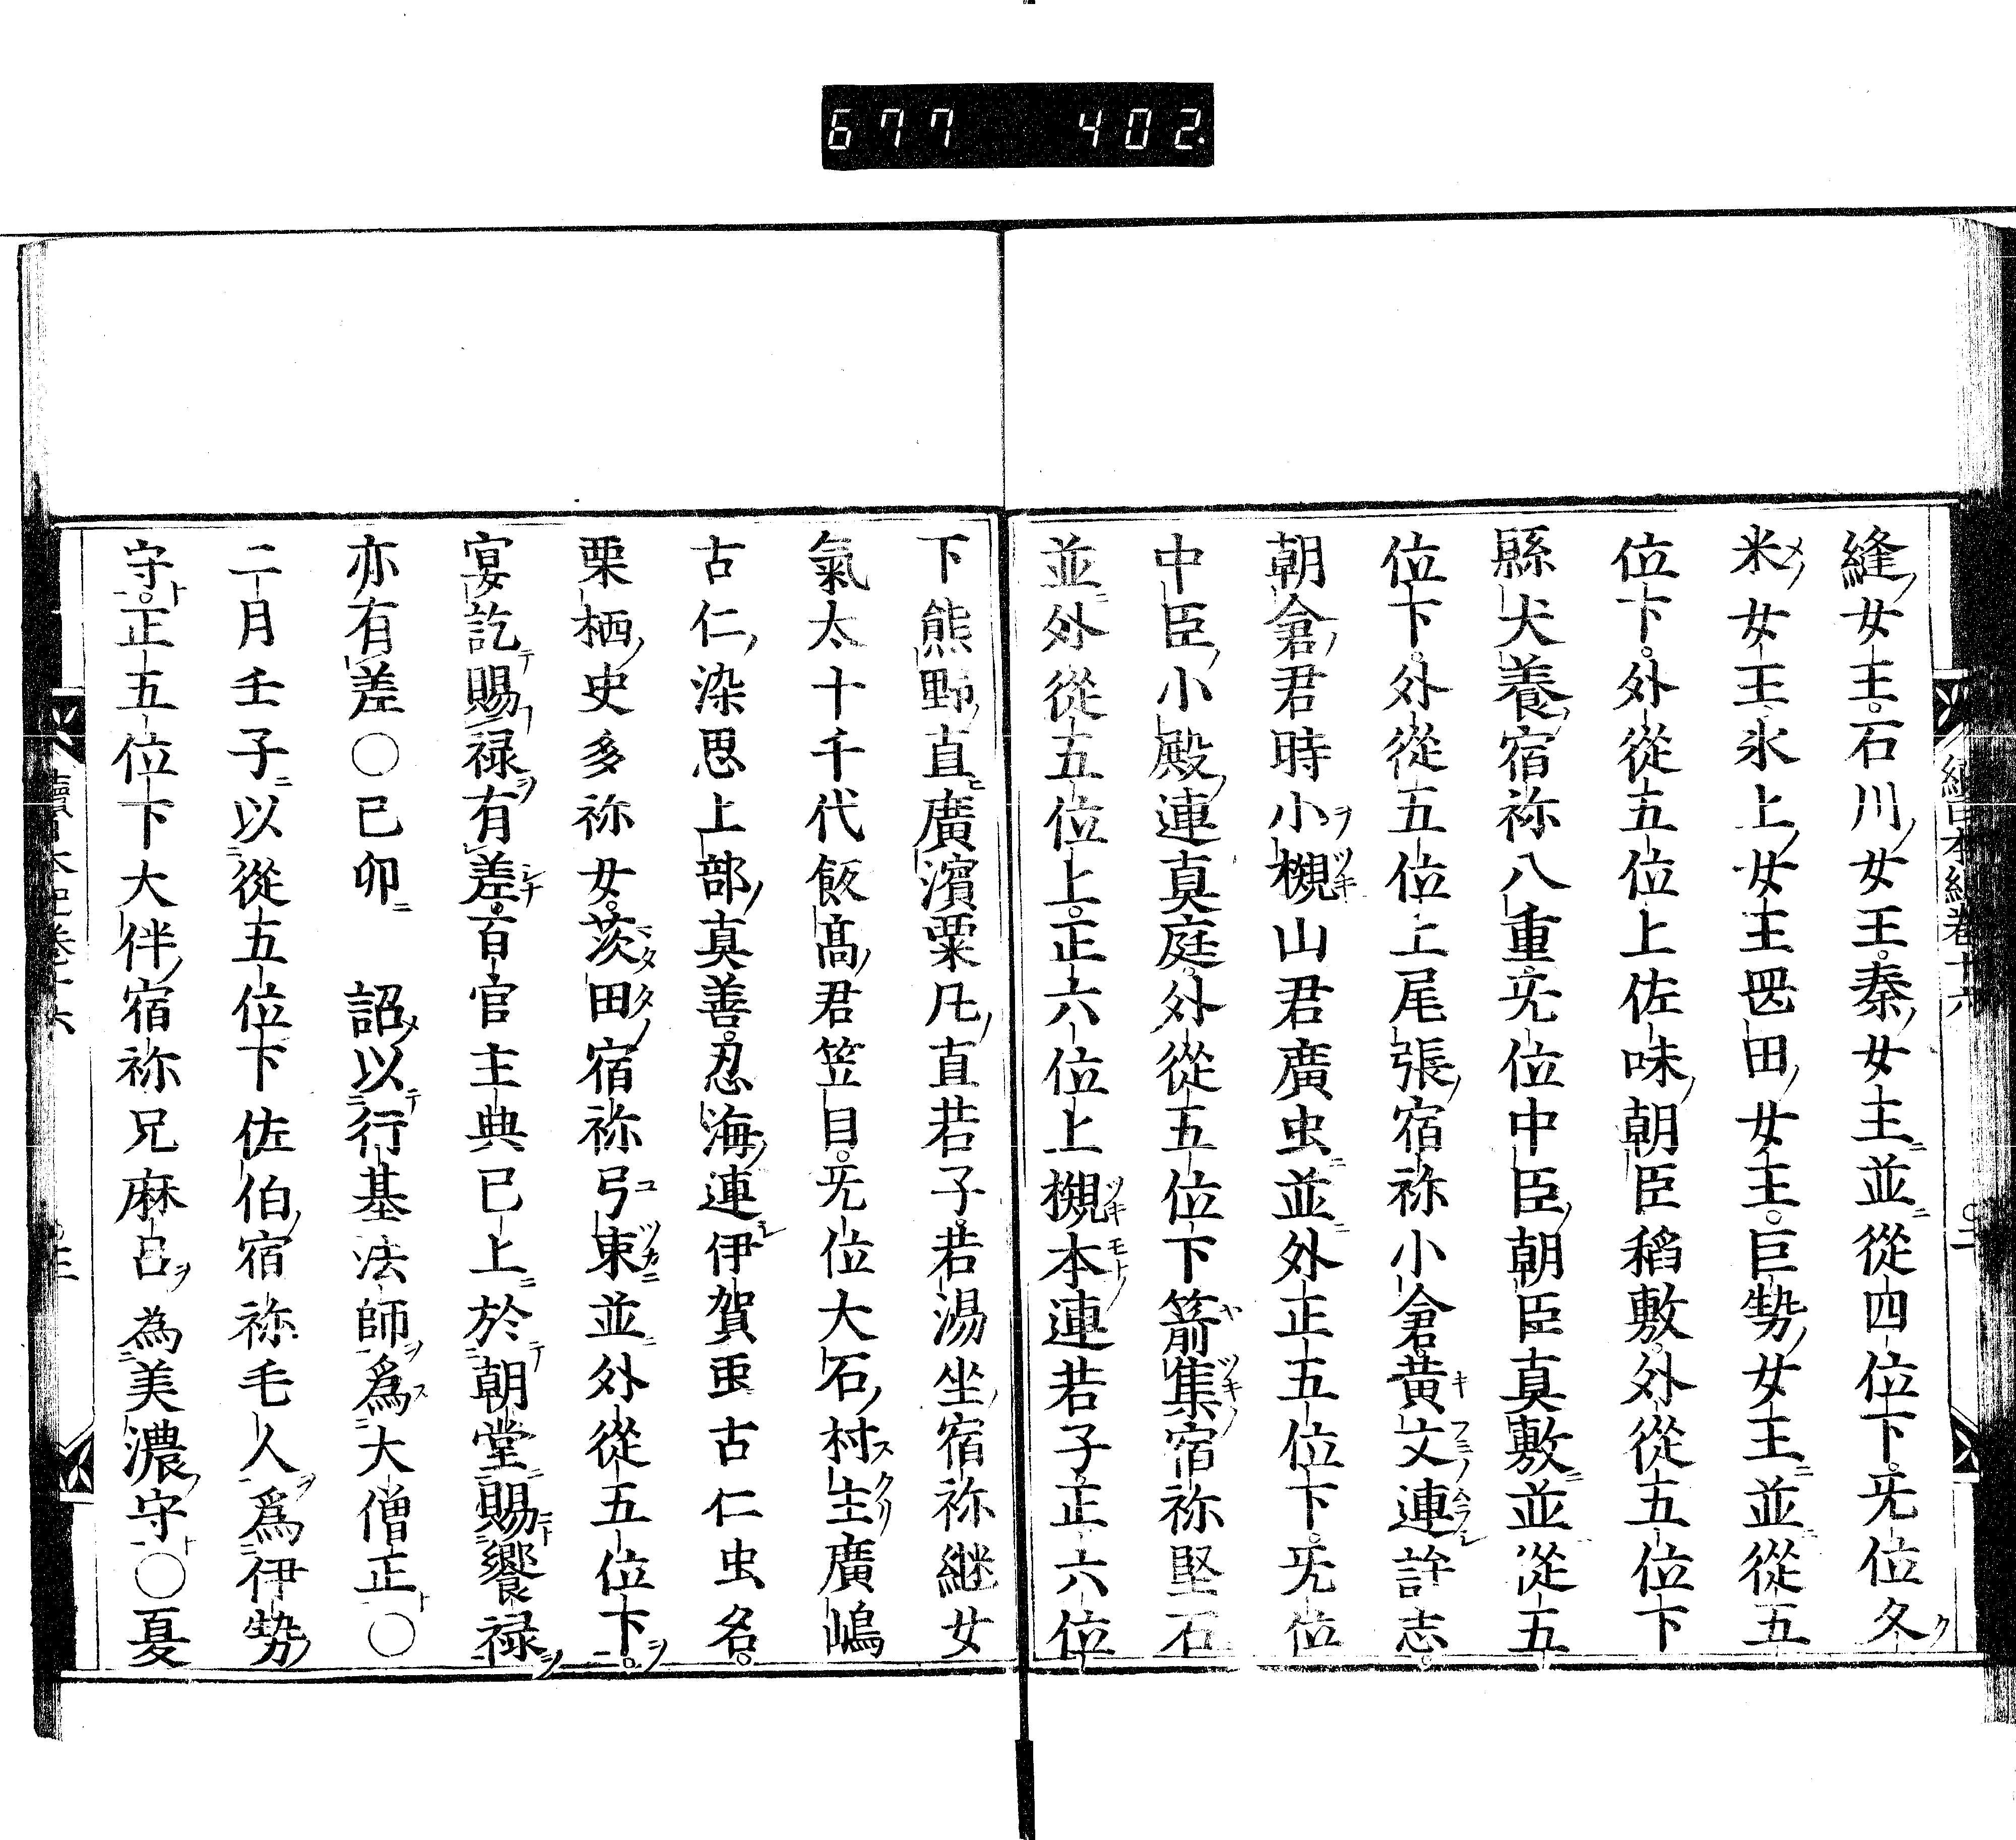 677 402
續日本紀卷十六 ○二
縫女王。石川女王。秦女王並從四位下。旡位久
米女王氷上女王罡田女王。巨勢女王並從五
位下。外從五位上佐味朝臣稻敷。外從五位下
縣犬養宿祢八重旡位中臣朝臣真敷並從五
位下。外從五位上尾張宿祢小倉。黄文連許志。
朝倉君時小槻山君廣虫並外正五位下。旡位
中臣小殿連真庭。外從五位下箭集宿祢堅石
並外從五位上。正六位上槻本連若子。正六位
下熊野直廣濱粟凡直若子。若湯坐宿祢継女
氣太十千代飯高君笠目。旡位大石村主廣嶋
古仁染思上部真善。忍海連伊賀䖝古仁虫名。
栗栖史多祢女。茨田宿祢弓束並外從五位下。
宴訖賜禄有差。百官主典已上於朝堂賜饗禄
亦有差○已卯 詔以行基法師爲大僧正○
二月壬子以從五位下佐伯宿祢毛人爲伊勢
守。正五位下大伴宿祢兄麻呂為美濃守○夏